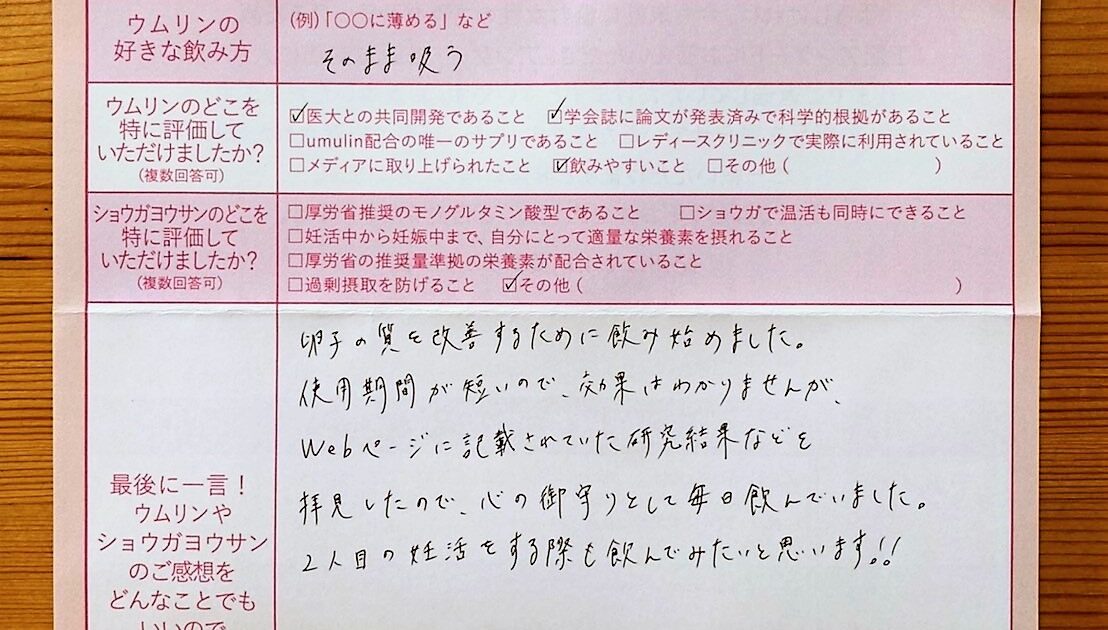 ウムリンの
好きな飲み方
(例)「〇〇に薄める」など
そのまま吸う
ウムリンのどこを
特に評価して
いただけましたか?
(複数回答可)
☑医大との共同開発であること ☑学会誌に論文が発表済みで科学的根拠があること
□umulin配合の唯一のサプリであること □レディースクリニックで実際に利用されていること
□メディアに取り上げられたこと ☑飲みやすいこと □その他( )
ショウガヨウサンのどこを
特に評価して
いただけましたか?
(複数回答可)
□厚労省推奨のモノグルタミン酸型であること □ショウガで温活も同時にできること
□妊活中から妊娠中まで、自分にとって適量な栄養素を摂れること
□厚労省の推奨量準拠の栄養素が配合されていること
□過剰摂取を防げること ☑その他( )
最後に一言!
ウムリンや
ショウガヨウサン
のご感想を
どんなことでも
いいので
卵子の質を改善するために飲み始めました。
使用期間が短いので、効果はわかりませんが、
Webページに記載されていた研究結果などを
拝見したので、心の御守りとして毎日飲んでいました。
2人目の妊活をする際も飲んでみたいと思います!!